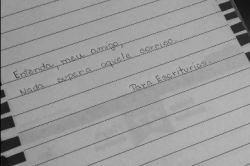 Entenda, meu amigo,
Nada supera aquele sorriso.
Para Escriturias.